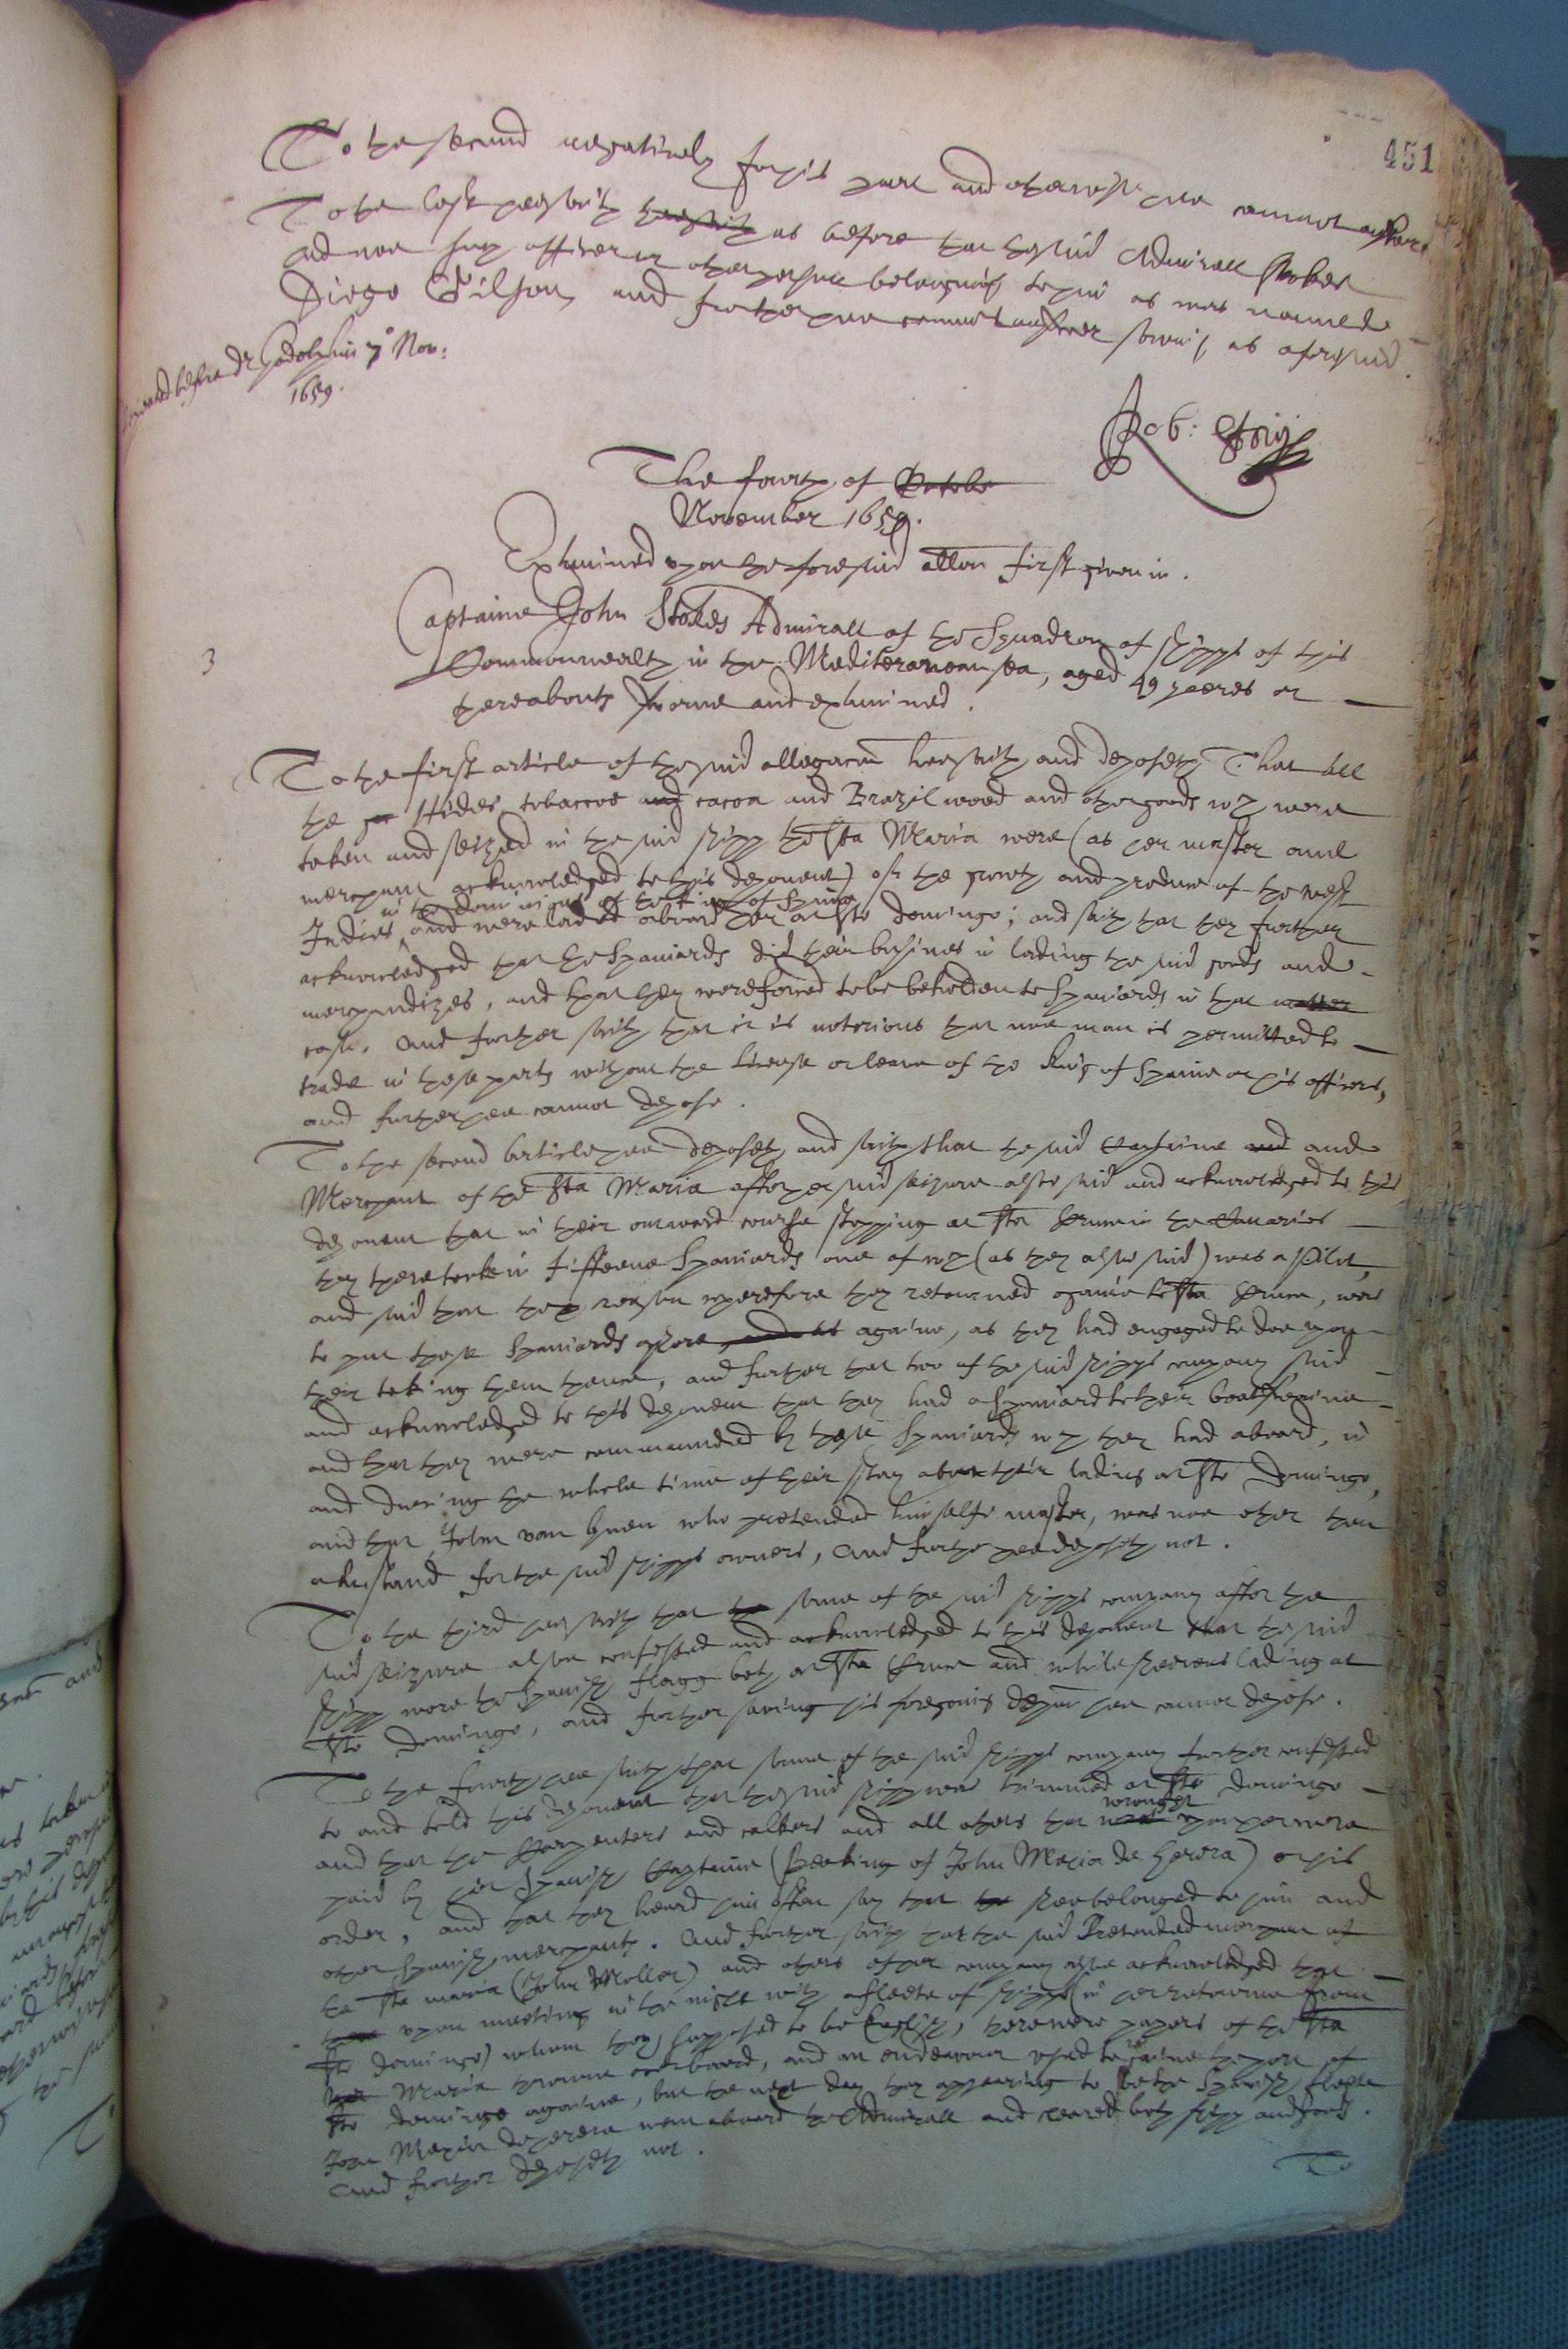 451
To the second negatively for his part and otherwise hee cannot answere
To the last hee saith hee saith as before that the said Admirall Stokes
had noe such officer or other person belonging to him as was named
Diego Wilson, and further hee cannot answer saving as aforesaid.
Repeated before dr Godolphin 7o Nov:
1659.
Rob: Story
The fourth of Octobe
November 1659.
Examined upon the foresaid allon first given in.
3
Captaine John Stokes Admirall of the Squadron of shipps of this
Commonwealth in the Mediteranean sea, aged 49 yeeres or
thereabouts sworne and examined.
To the first article of the said allegacon hee saith and deposeth That all
the go Hides tobaccoe and cacoa and Brazil wood and other goods wch were
taken and seized in the said shipp the Sta Maria were (as her master and
merchant acknowledged to this deponent) of the growth and produce of the West
in the dominions of the King of Spaine
Indies and were laded aboard her at Sto Domingo; and saith that they further
acknowledged that the Spaniards did their busines in lading the said goods and
merchandizes, and that they were forced to be beholden to Spaniards in that matter
case. And further saith that it is notorious that noe man is permitted to
trade in those parts without the license or leave of the King of Spaine or his officers,
and further hee cannot depose.
To the second article hee deposeth and saith that the said Captaine and and
Merchant of the Sta Maria after her said seizure alsoe said and acknowledged to this
deponent that in their outward course stopping at Sta Cruse in the Canaries
they there tooke in fifteene Spaniards one of wch (as they alsoe said) was a Pilot,
and said that the reason wherefore they retourned againe to Sta Cruse, was
to put those Spaniards ashore, and as againe, as they had engaged to doe upon
their taking them thence, and further that two of the said shipps company said
and acknowledged to this deponent that they had a Spaniard to their boatswaine
and that they were commaunded by those Spaniards wch they had aboard, in
and during the whole time of their stay about their lading at Sto Domingo,
and that John van Gnen who pretended himselfe master, was noe other then
a husband for the said shipps owners, And further hee deposeth not.
To the third hee saith that the some of the said shipps company after the
said seizure alsoe confessed and acknowledged to this deponent that the said
shipp wore the Spanish flagg both at Sta Cruse and while shee was lading at
Sto Domingo, and further saving his foregoing deposn hee cannot depose.
To the fourth hee saith that some of the said shipps company further confessed
to and told this deponent that the said shipp was trimmed at Sto Domingo
wrought
and that the Carpenters and calkers and all others that were upon her were
paid by her Spanish Captaine (speaking of John Maria de Herera) or his
order, and that they heard him often say that the shee belonged to him and
other Spanish merchants. And further saith that the said Pretended merchant of
the Sta Maria (John Mollar) and others of her company alsoe acknowledged that
upon meeting in the night with a fleete of shipps (in her retourne from
Sto Domingo) whom they supposed to be English, there were papers of the Sta
Maria throwne overboard, and an endeavour used to gaine the port of
Sto Domingo againe, but the next day they appearing to be the Spanish fleete
John Maria de Herera went aboard the Admirall and cleared both shipp and goods.
And further deposeth not.
To